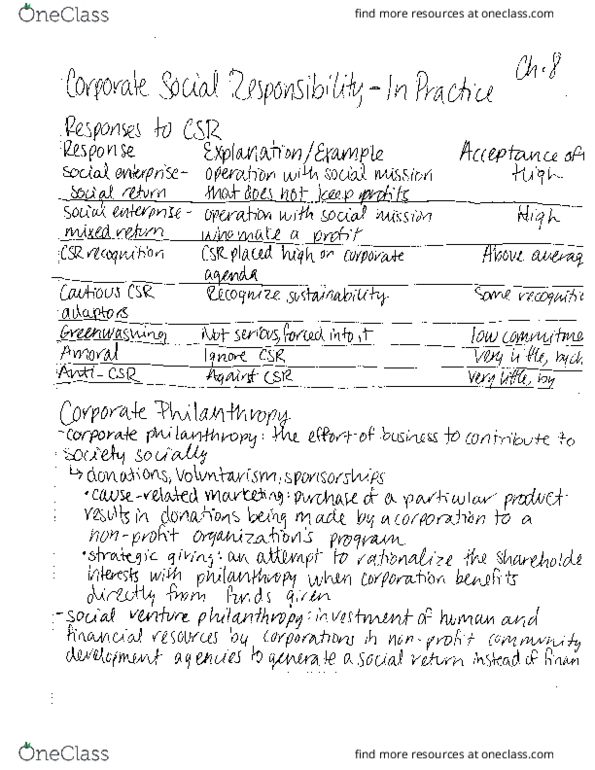 OneClass
find more resources at oneclass.com
Ch. 8
Corporate Social Responsibility - In Practice
Responses to CSR
Response Explanation/Example Acceptance of
social enterprise- operation with social mission High
social return that does not keep profits
social enterprise- operation with social mission High
mixed return who make a profit
CSR recognition CSR placed high on corporate Above averag
agenda
Cautious CSR Recognize sustainability Some recogniti
adaptors
Greenwashing Not serious, forced into it low commitme
Amoral Ignore CSR very little,
Anti-CSR Against CSR very little, by
Corporate Philanthropy
-corporate philanthropy: the effort of business to contribute to
society socially
↳ donations, voluntarism, sponsorships
• cause-related marketing: purchase of a particular product
results in donations being made by a corporation to a
non-profit organization's program
• strategic giving: an attempt to rationalize the shareholde
interests with philanthropy when corporation benefits
directly from funds given
- social venture philanthropy: investment of human and
financial resources by corporations in non-profit community
development agencies to generate a social return instead of finan
OneClass
find more resources at oneclass.com